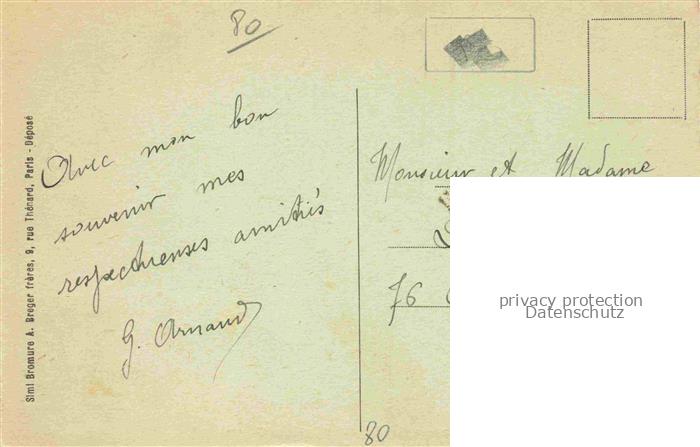 80
Avec mon bon
souvenir mes
respectueuses amitiés
G. Arnaud
Monsieur et Madame
76
80
Simi Bromure A. Breger frères, 9, rue Thénard, Paris - Déposé
privacy protection
Datenschutz